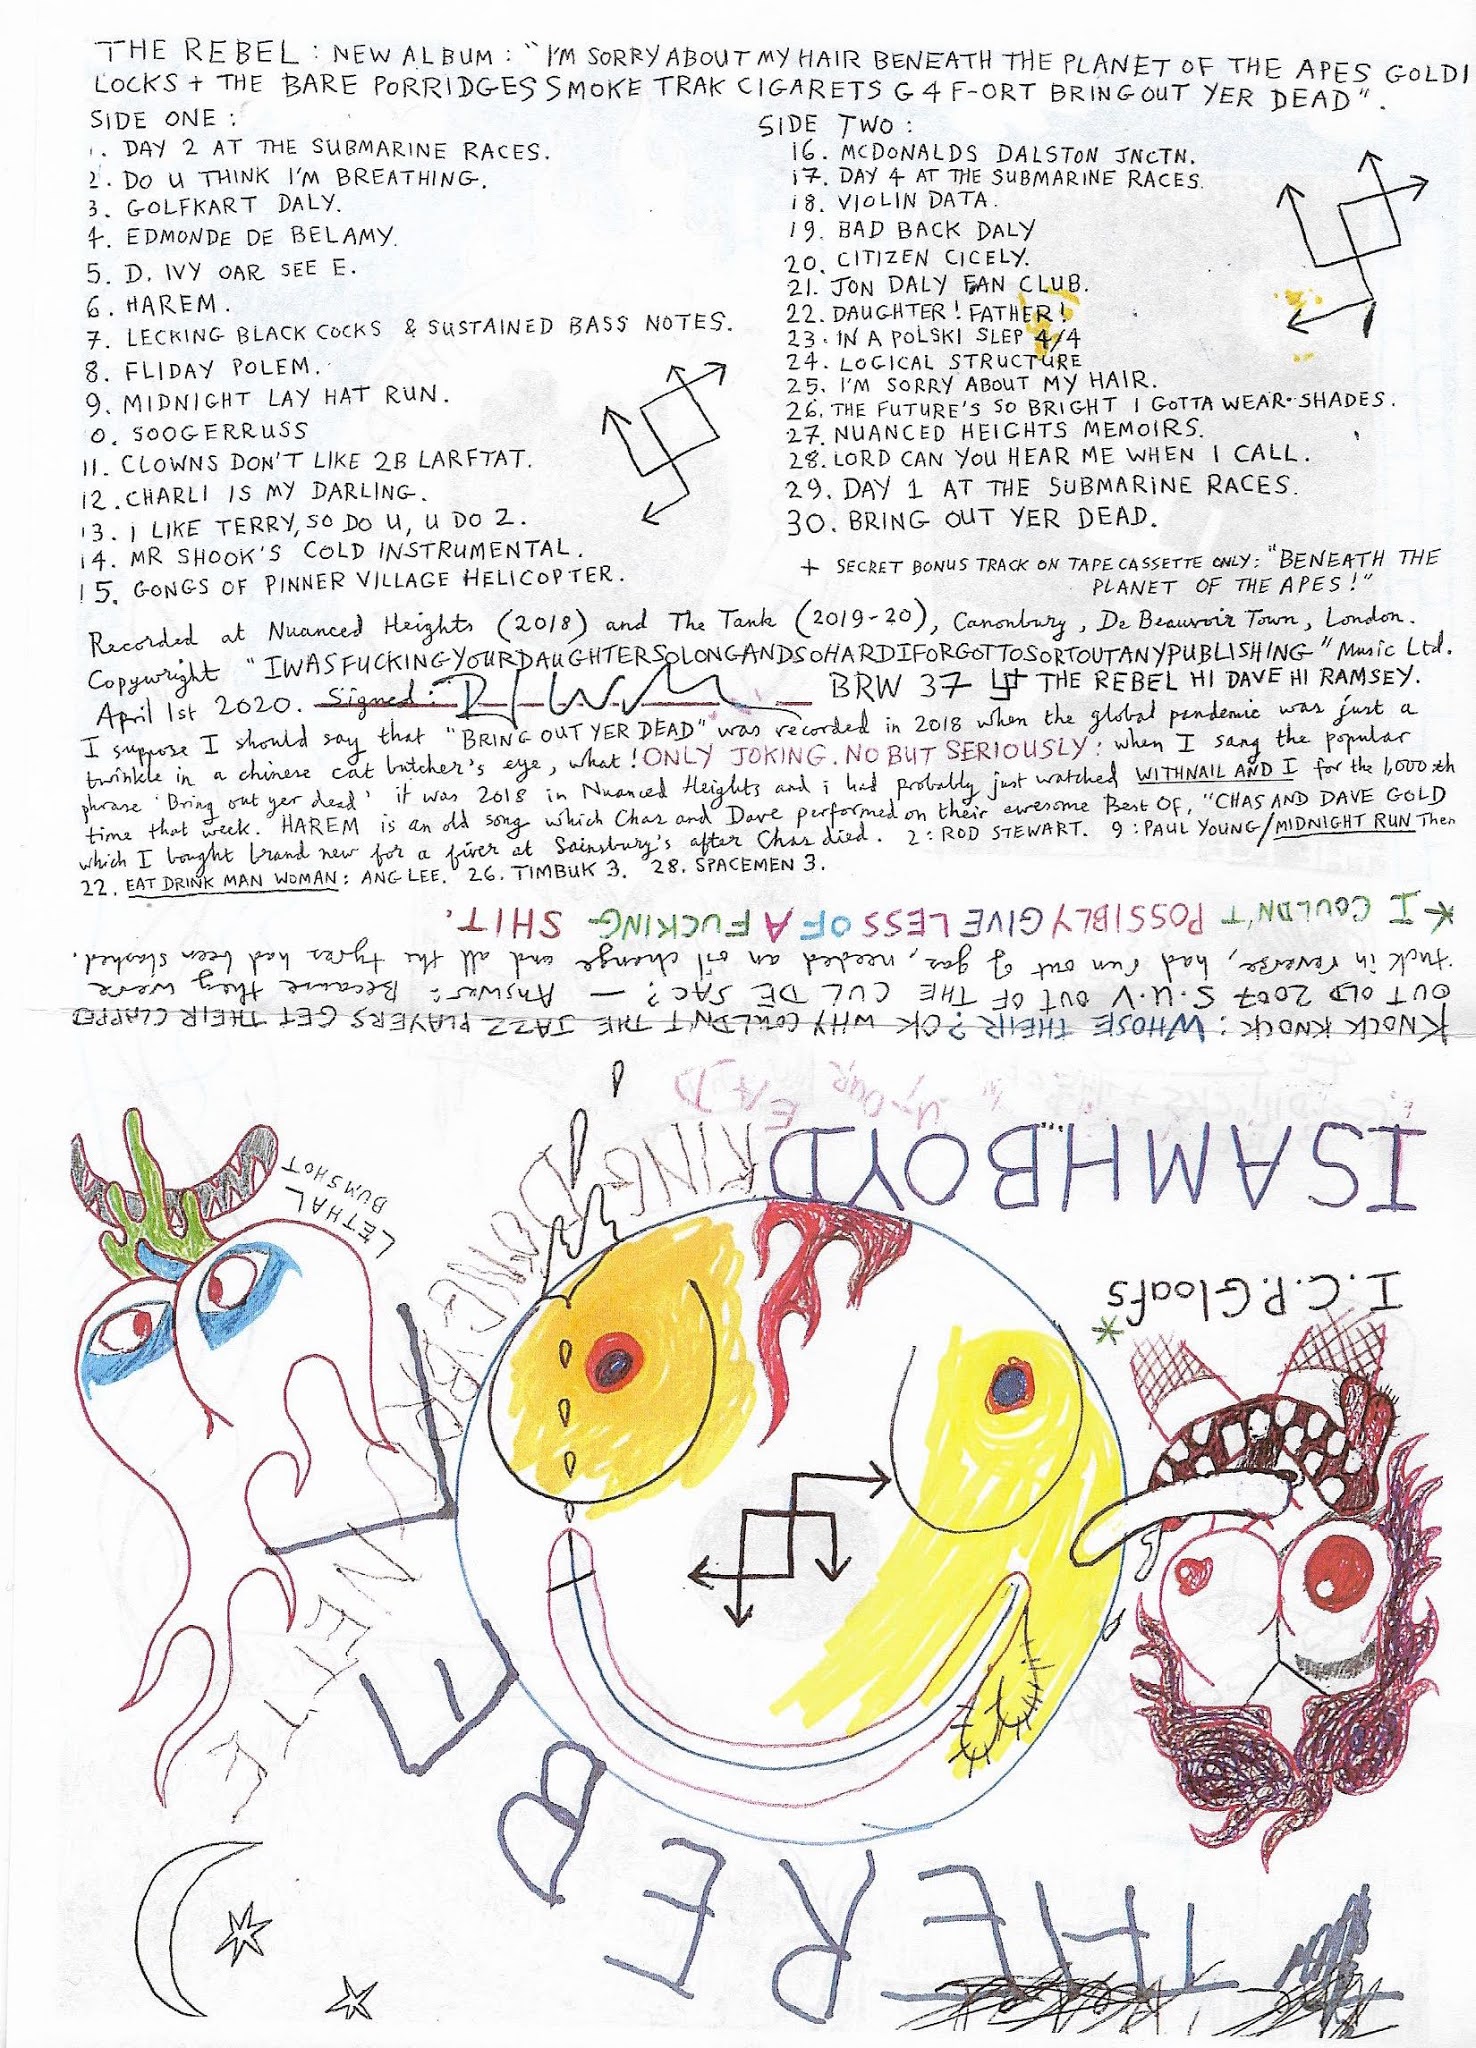 THE REBEL : NEW ALBUM : "I'M SORRY ABOUT MY HAIR BENEATH THE PLANET OF THE APES GOLDI
LOCKS + THE BARE PORRIDGES SMOKE TRAK CIGARETS G 4 F-ORT BRING OUT YER DEAD".
SIDE ONE :
1. DAY 2 AT THE SUBMARINE RACES.
2. DO U THINK I'M BREATHING.
3. GOLFKART DALY.
4. EDMONDE DE BELAMY.
5. D. IVY OAR SEE E.
6. HAREM.
7. LECKING BLACK COCKS & SUSTAINED BASS NOTES.
8. FLIDAY POLEM.
9. MIDNIGHT LAY HAT RUN.
0. SOOGERRUSS
11. CLOWNS DON'T LIKE 2B LARFTAT.
12. CHARLI IS MY DARLING.
13. I LIKE TERRY, SO DO U, U DO 2.
14. MR SHOOK'S COLD INSTRUMENTAL.
15. GONGS OF PINNER VILLAGE HELICOPTER.
SIDE TWO :
16. MCDONALDS DALSTON JNCTN.
17. DAY 4 AT THE SUBMARINE RACES.
18. VIOLIN DATA.
19. BAD BACK DALY
20. CITIZEN CICELY.
21. JON DALY FAN CLUB.
22. DAUGHTER! FATHER!
23. IN A POLSKI SLEP 4/4
24. LOGICAL STRUCTURE
25. I'M SORRY ABOUT MY HAIR.
26. THE FUTURE'S SO BRIGHT I GOTTA WEAR SHADES.
27. NUANCED HEIGHTS MEMOIRS.
28. LORD CAN YOU HEAR ME WHEN I CALL.
29. DAY 1 AT THE SUBMARINE RACES.
30. BRING OUT YER DEAD.
+ SECRET BONUS TRACK ON TAPE CASSETTE ONLY: "BENEATH THE
PLANET OF THE APES!"
Recorded at Nuanced Heights (2018) and The Tank (2019-20), Canonbury, De Beauvoir Town, London.
Copywright "IWASFUCKINGYOURDAUGHTERSOLONGANDSOHARDIFORGOTTOSORTOUTANYPUBLISHING" Music Ltd.
April 1st 2020. Signed: BRW 37 THE REBEL HI DAVE HI RAMSEY.
I suppose I should say that "BRING OUT YER DEAD" was recorded in 2018 when the global pandemic was just a
twinkle in a chinese cat butcher's eye, what! ONLY JOKING. NO BUT SERIOUSLY: when I sang the popular
phrase 'Bring out yer dead' it was 2018 in Nuanced Heights and i had probably just watched WITHNAIL AND I for the 1,000th
time that week. HAREM is an old song which Chas and Dave performed on their awesome Best Of, "CHAS AND DAVE GOLD
which I bought brand new for a fiver at Sainsbury's after Chas died. 2: ROD STEWART. 9: PAUL YOUNG/MIDNIGHT RUN Then
22. EAT DRINK MAN WOMAN: ANG LEE. 26. TIMBUK 3. 28. SPACEMEN 3.
* I COULDN'T POSSIBLY GIVE LESS OF A FUCKING SHIT.
KNOCK KNOCK: WHOSE THEIR? OK WHY COULDN'T THE JAZZ PLAYERS GET THEIR CLAPPED
OUT OLD 2007 S.U.V OUT OF THE CUL DE SAC? — Answer: Because they were
stuck in reverse, had run out of gas, needed an oil change and all the tyres had been slashed.
ISAMHBOYD
LETHAL
BUMSHOT
I.C.P.Gloafs
*
THE REBEL